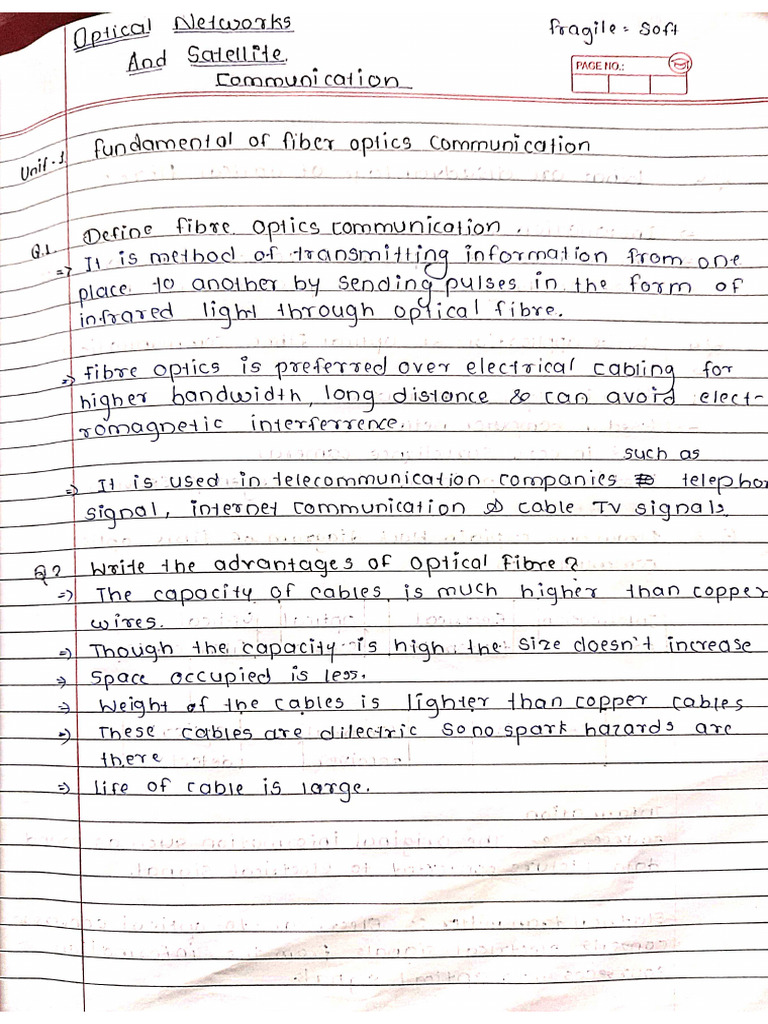 Optical Networks
And Satellite
Communication
fragile = Soft
PAGE NO.:
Unit-1
fundamental of fiber optics communication
Q.1 Define fibre optics communication.
=> It is method of transmitting information from one
place to another by sending pulses in the form of
infrared light through optical fibre.
=> fibre optics is preferred over electrical cabling for
higher bandwidth, long distance & can avoid elect-
romagnetic interferrence.
such as
=> It is used in telecommunication companies telephon
signal, internet communication & cable TV signals.
Q2 Write the advantages of optical Fibre?
=> The capacity of cables is much higher than copper
wires.
=> Though the capacity is high the size doesn't increase
=> Space occupied is less.
=> Weight of the cables is lighter than copper cables
=> These cables are dilectric so no spark hazards are
there
=> life of cable is large.